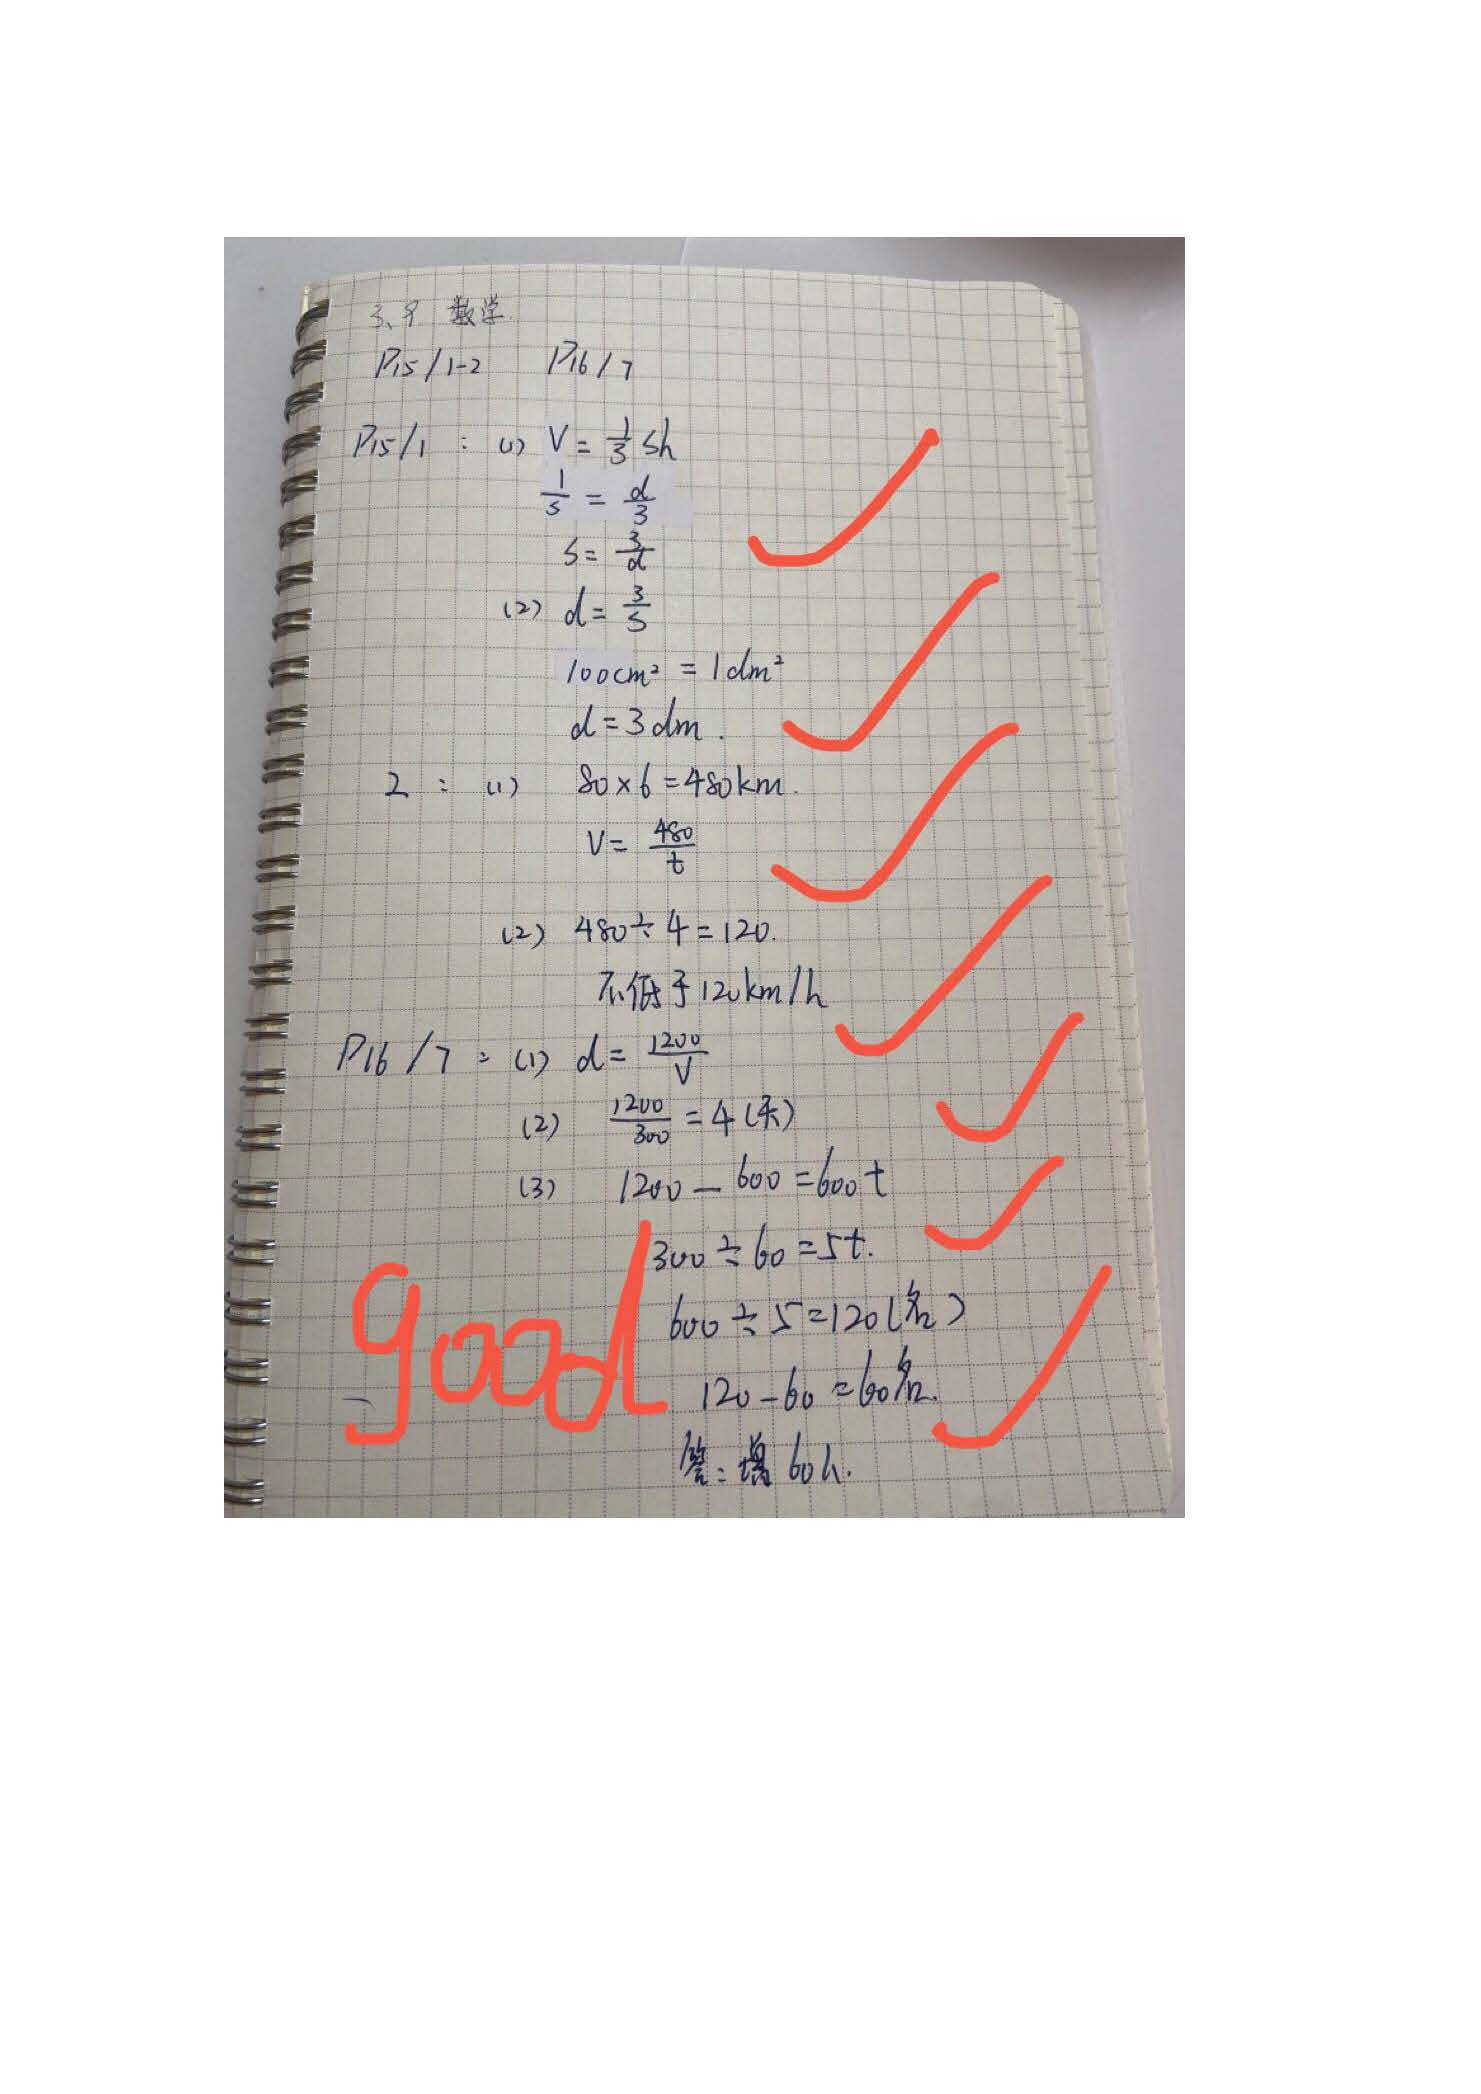 3、9 数学
P15/1-2 P16/7
P15/1: (1) V=1/3 Sh
1/S = d/3
S= 3/d
(2) d= 3/S
100cm²=1dm²
d=3dm.
2: (1) 80×6=480km.
V= 480/t
(2) 480÷4=120.
不低于120km/h
P16/7: (1) d= 1200/V
(2) 1200/300 =4(天)
(3) 1200-600=600t
300÷60=5t.
600÷5=120(名)
120-60=60名.
答: 增60人.
good